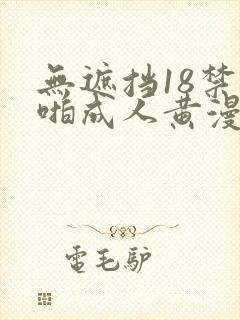 無遮挡18禁
啪成人黄漫
電毛驴